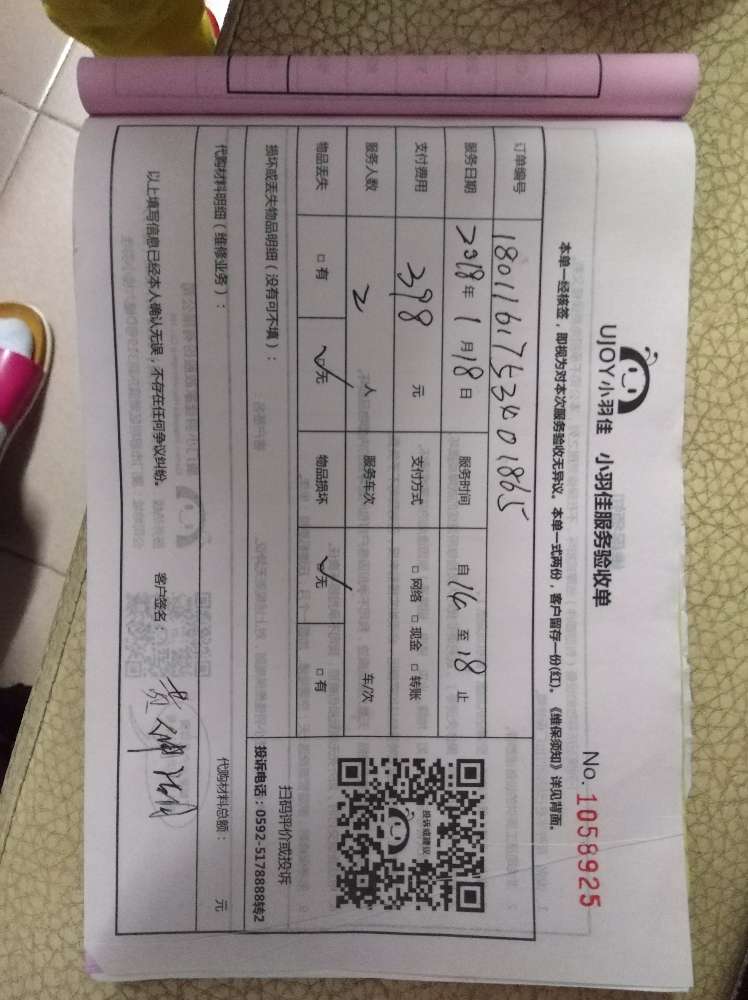 UJOY小羽佳 小羽佳服务验收单
No. 1058925
本单一经核签，即视为对本次服务验收无异议。本单一式两份，客户留存一份(红)。《维保须知》详见背面。
订单编号 180116175340 1865
服务日期 2018年 1月18日 服务时间 自 14 至 18 止
支付费用 398 元 支付方式 □ 网络 □ 现金 □ 转账
服务人数 2 人 服务车次 车/次
物品丢失 □ 有 ☑无 物品损坏 ☑无 □ 有
投诉或建议
扫码评价或投诉
投诉电话：0592-5178888转2
损坏或丢失物品明细（没有可不填）：
代购材料明细（维修业务）： 代购材料总额： 元
以上填写信息已经本人确认无误，不存在任何争议纠纷。 客户签名：